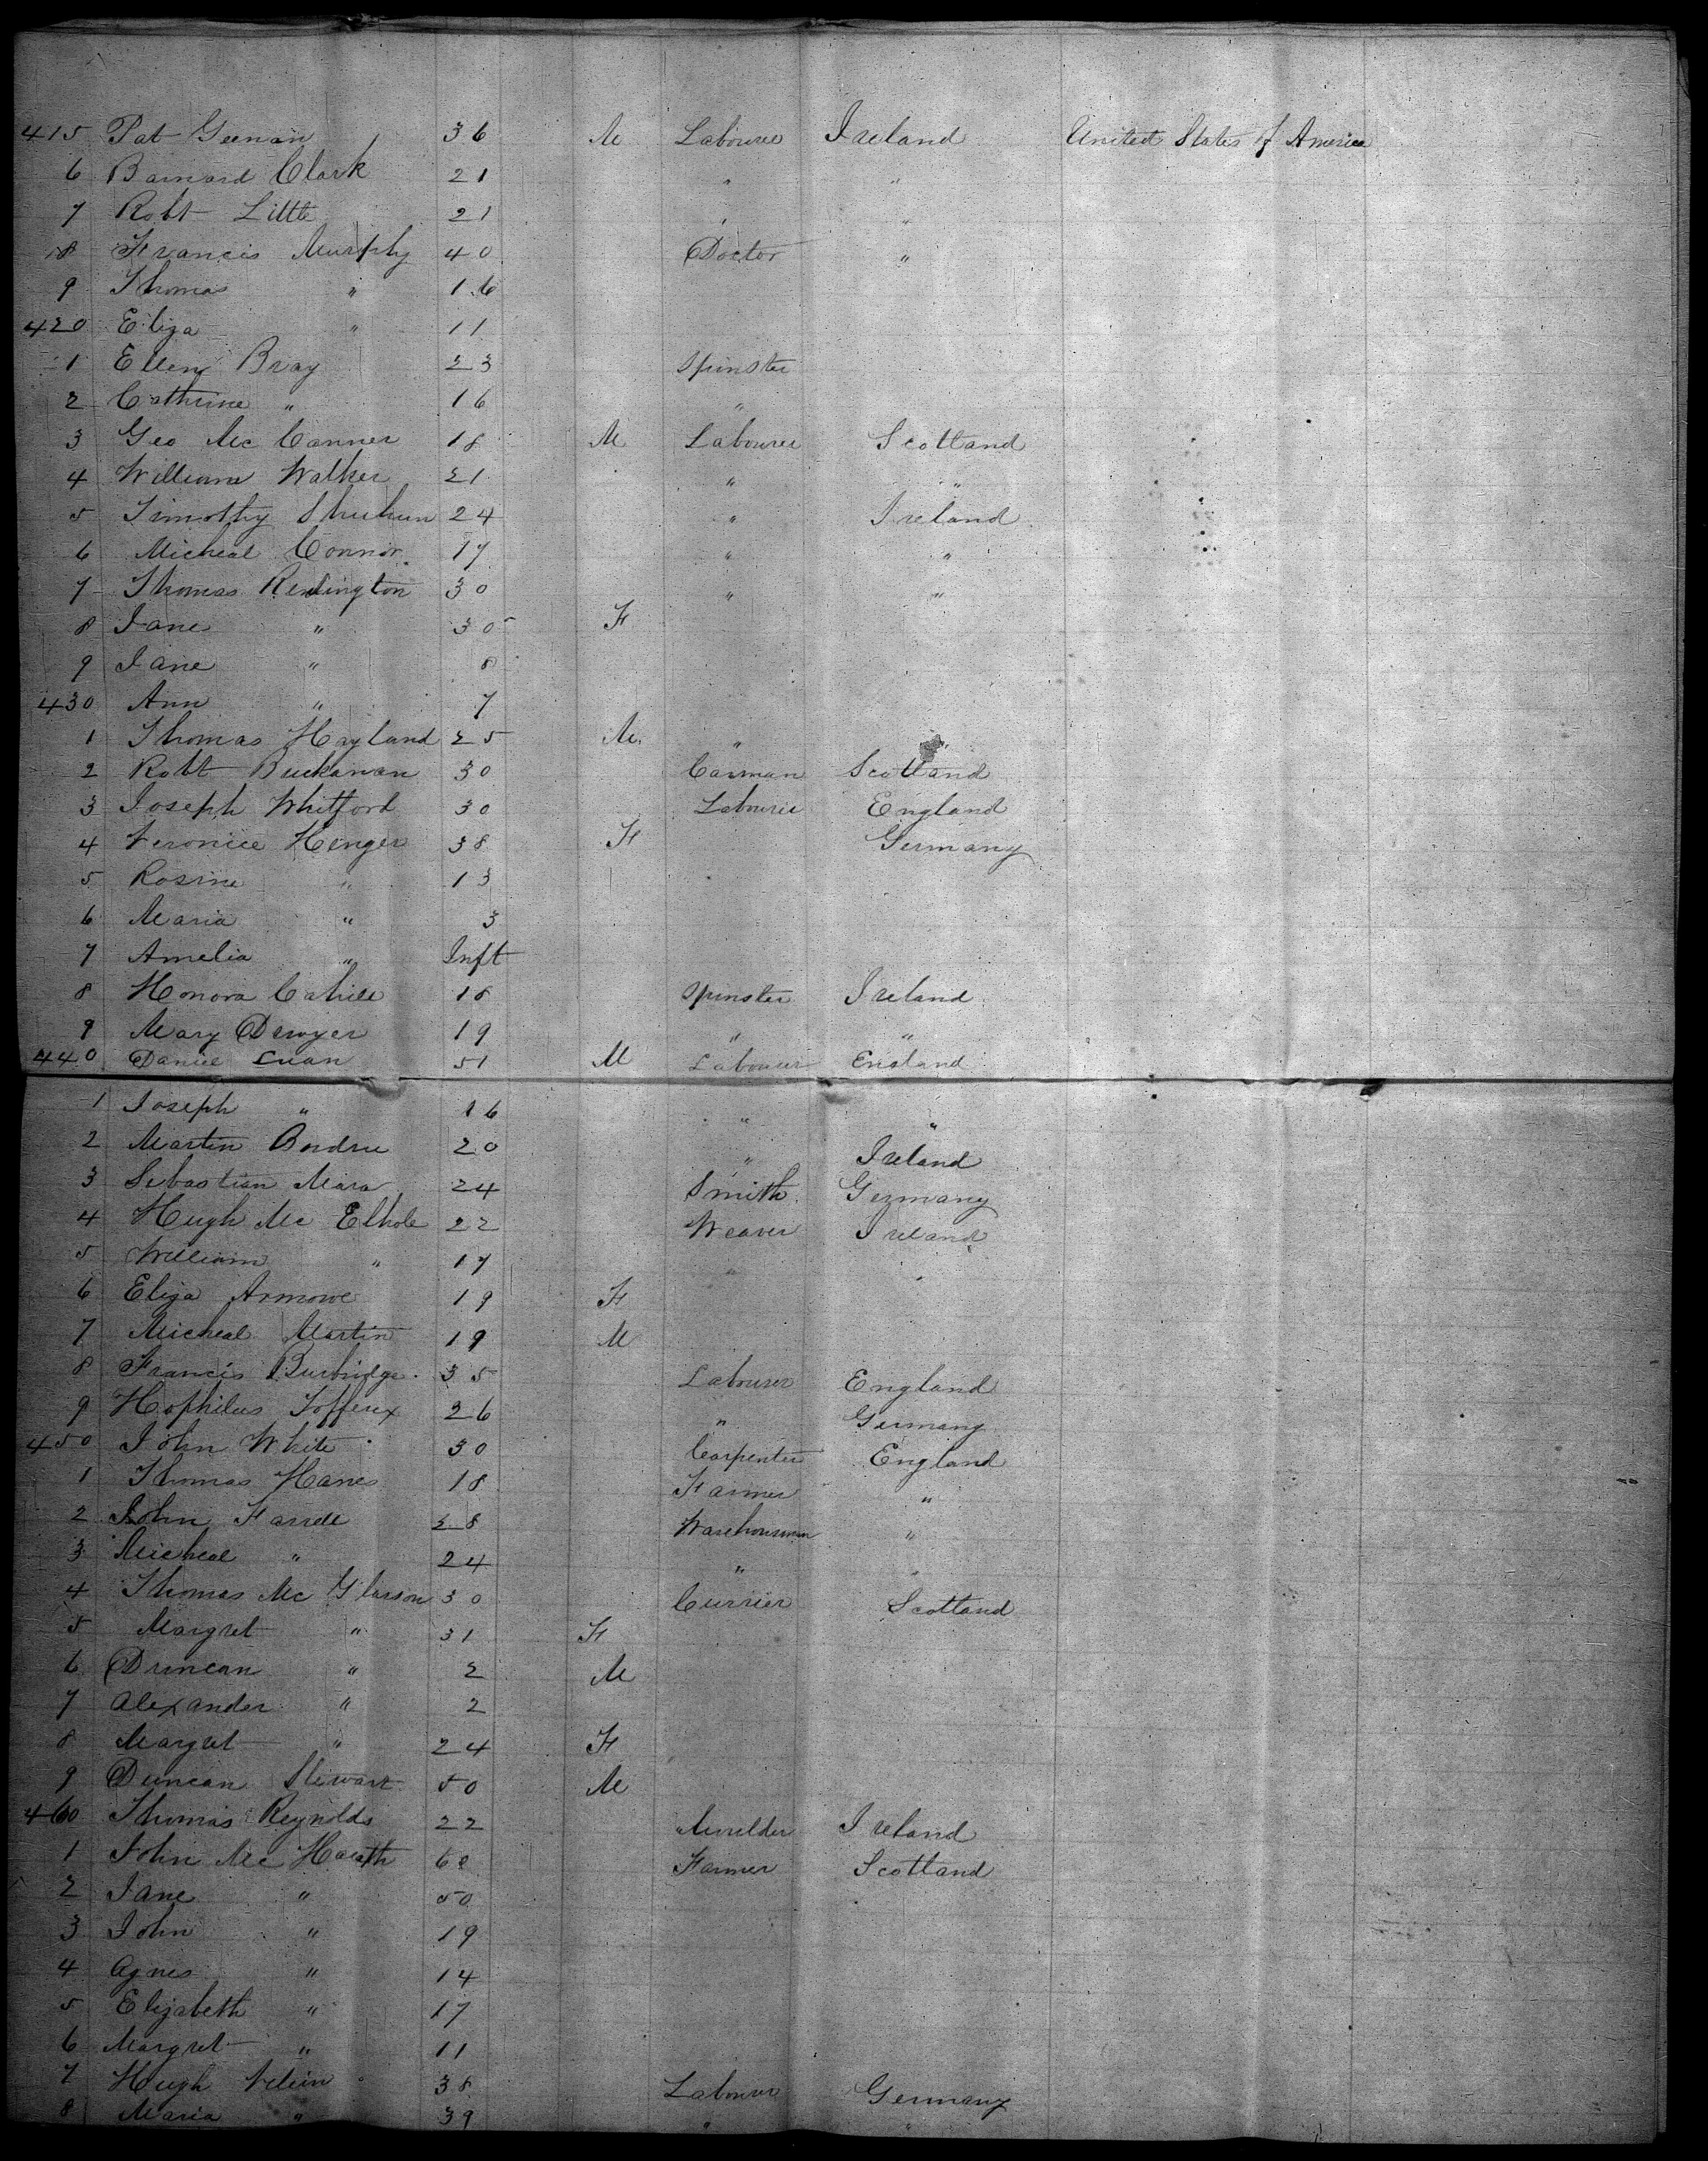 415 Pat Geenan 36 M Labourer Ireland United States of America
6 Barnard Clark 21 " "
7 Robt Little 21 " "
8 Francis Murphy 40 Doctor "
9 Thomas " 16
420 Eliza " 11
1 Ellen Bray 23 Spinster
2 Cathrine " 16 "
3 Geo Mc Canner 18 M Labourer Scotland
4 William Walker 21 " "
5 Timothy 24 " Ireland
6 Micheal Connor 17 " "
7 Thomas Redington 30 " "
8 Jane " 30 F
9 Jane " 8
430 Ann " 7
1 Thomas Hayland 25 M " "
2 Robt Buckanan 30 Carman Scotland
3 Joseph Whitford 30 Labourer England
4 Veronice Henger 38 F Germany
5 Rosine " 13
6 Maria " 3
7 Amelia " Inft
8 Honora Cahill 18 Spinster Ireland
9 Mary Dwyer 19 " "
440 Daniel Luan 51 M Labourer England
1 Joseph " 16 " "
2 Martin 20 " Ireland
3 Sebastian Mara 24 Smith Germany
4 Hugh Mc Elhole 22 Weaver Ireland
5 William " 17 " "
6 Eliza Armowe 19 F
7 Micheal Martin 19 M
8 Francis Burbridge 35 Labourer England
9 Hophilus 26 " Germany
450 John White 30 Carpenter England
1 Thomas Hanes 18 Farmer "
2 John Farrell 28 Warehouseman "
3 Micheal " 24 " "
4 Thomas Mc Glarson 30 Currier Scotland
5 Margret " 31 F
6 Duncan " 2 M
7 Alexander " 2
8 Margret " 24 F
9 Duncan Stewart 50 M
460 Thomas Reynolds 22 Moulder Ireland
1 John Mc Haath 60 Farmer Scotland
2 Jane " 50
3 John " 19
4 Agnes " 14
5 Elizabeth " 17
6 Margret " 11
7 Hugh 38 Labourer Germany
8 Maria " 39 " "